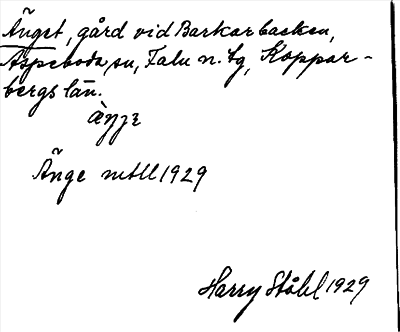 Änget, gård vid Barkarbacken,
Aspeboda sn, Falu n. tg, Koppar-
bergs län.
Änge mtll 1929
Harry Ståhl 1929